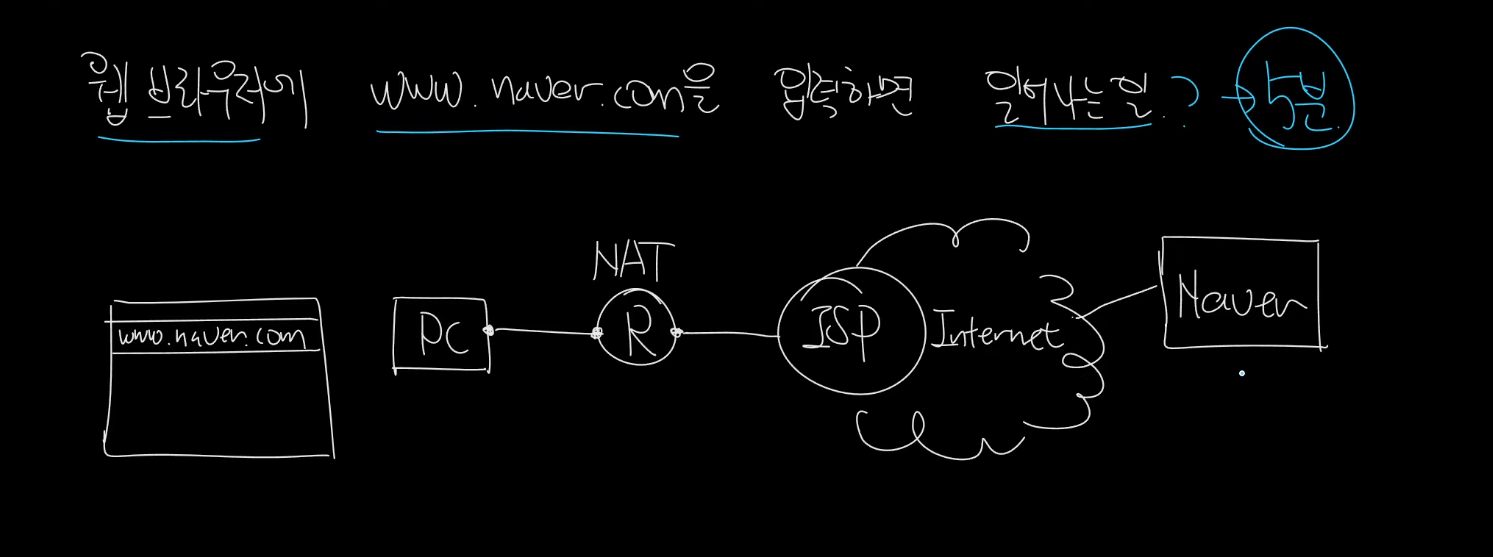 웹 브라우저에 www.naver.com을 입력하면 일어나는 일? → 5분
NAT
www.naver.com
PC
R
ISP
Internet
Naver